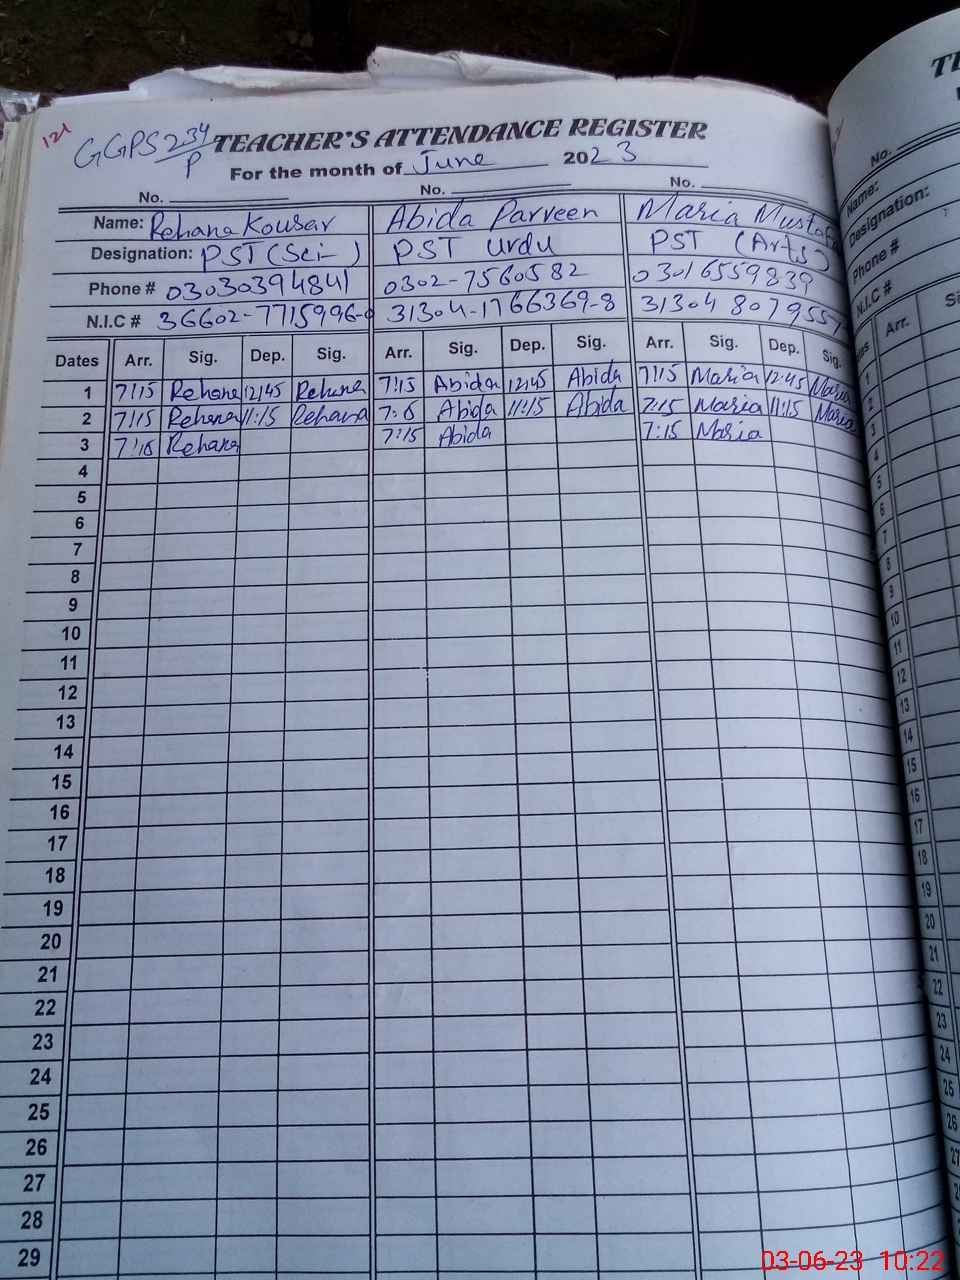 121
GGPS 234/P
TEACHER'S ATTENDANCE REGISTER
For the month of June 2023
No. No. No.
Name: Rehana Kousar Abida Parveen Maria Mustaf
Designation: PST (Sci-) PST Urdu PST (Arts)
Phone # 03030394841 0302-7560582 03016559839
N.I.C # 36602-7715996- 31304-1766369-8 31304 8079557
Dates Arr. Sig. Dep. Sig. Arr. Sig. Dep. Sig. Arr. Sig. Dep. Sig.
1 7:15 Rehana 12:45 Rehana 7:15 Abida 12:45 Abida 7:15 Maria 12:45 Maria
2 7:15 Rehana 11:15 Rehana 7: Abida 11:15 Abida 7:15 Maria 11:15 Maria
3 Rehana 7:15 Abida 7:15 Maria
4
5
6
7
8
9
10
11
12
13
14
15
16
17
18
19
20
21
22
23
24
25
26
27
28
29
No.
Name:
Designation:
Phone #
N.I.C #
Arr.
1
2
3
4
5
6
7
8
9
10
11
12
13
14
15
16
17
18
19
20
21
22
23
24
25
26
27
03-06-23 10:22